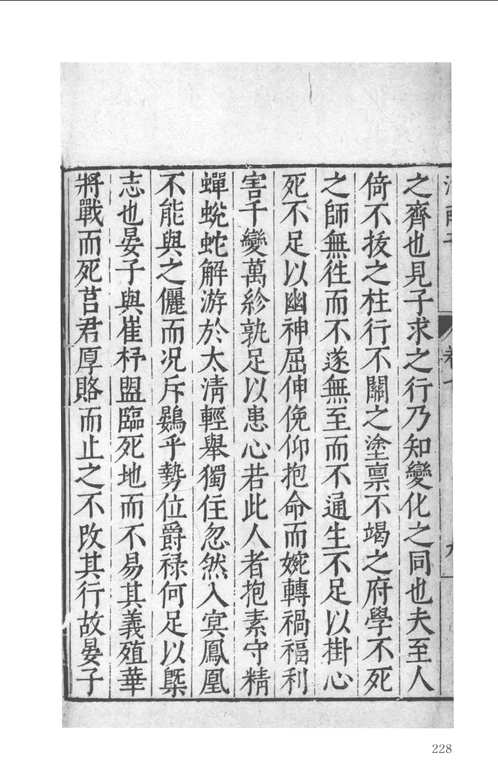 之齊也見子求之行乃知變化之同也夫至人
倚不拔之柱行不關之塗禀不竭之府學不死
之師無徃而不遂無至而不通生不足以掛心
死不足以幽神屈伸俛仰抱命而婉轉禍福利
害千變萬紾孰足以患心若此人者抱素守精
蟬蛻蛇解游於太清輕舉獨住忽然入㝠鳳凰
不能與之儷而况斥鷃乎勢位爵祿何足以槩
志也晏子與崔杼盟臨死地而不易其義殖華
將戰而死莒君厚賂而止之不改其行故晏子
228